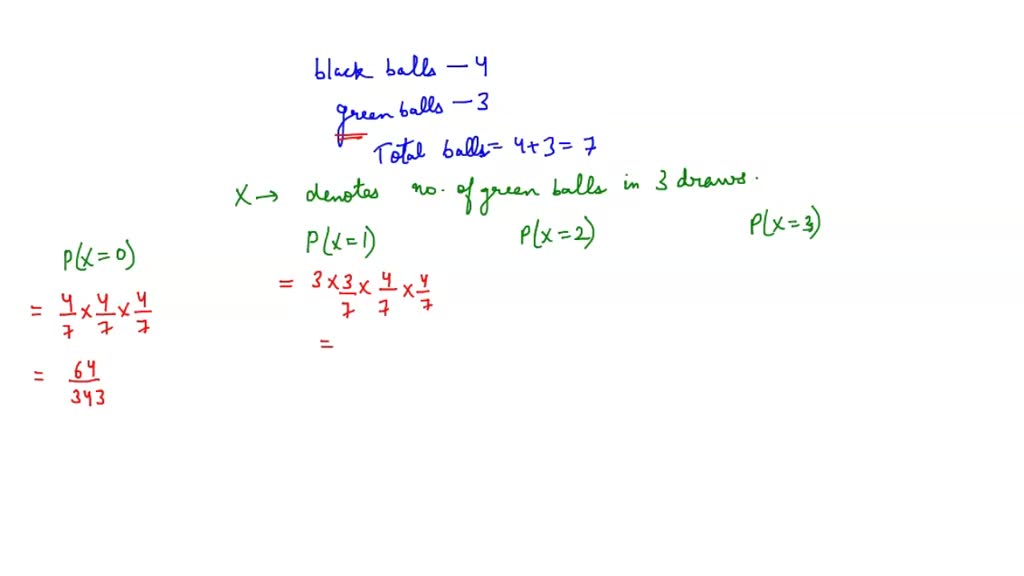 black balls – 4
green balls – 3
Total balls = 4+3 = 7
X → denotes no. of green balls in 3 draws.
P(X=0) P(X=1) P(X=2) P(X=3)
= 4/7 × 4/7 × 4/7 = 3 × 3/7 × 4/7 × 4/7
= 64/343 =